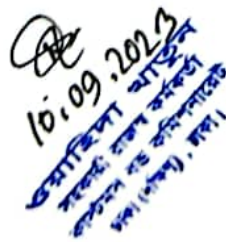 10.09.2023
ওয়াহিদা খাতুন
সহকারী রাজস্ব কর্মকর্তা
কাস্টমস বন্ড কমিশনারেট
ঢাকা (দক্ষিণ), ঢাকা।